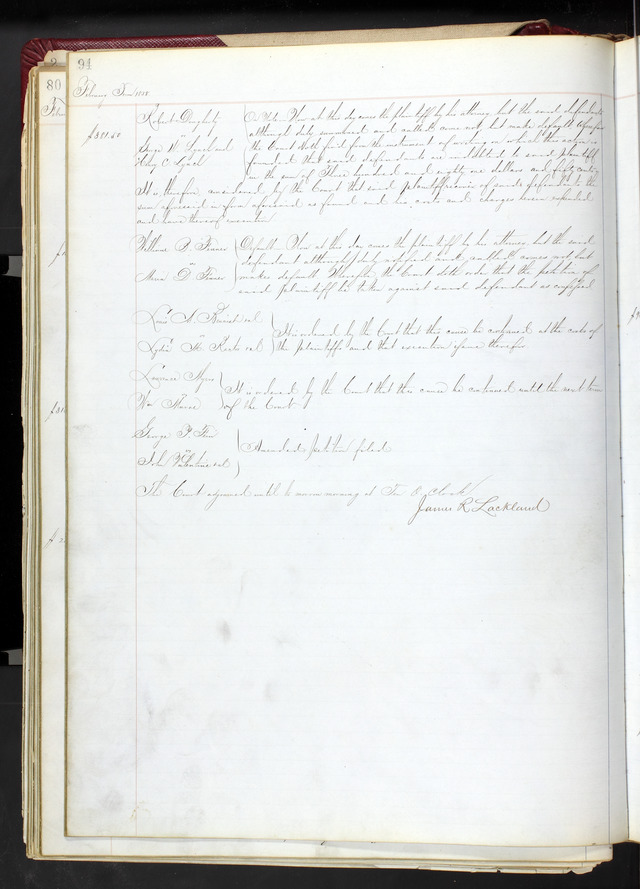 94
80
February Term 1858
Robert Dougherty
vs
George W. Lockland
Henry C. Lynch
$381.50
On Note. Now at this day comes the plaintiff by his attorney but the said defendants
although duly summoned and called come not, but make default wherefore
the Court doth find from the instrument of writing on which this action is
founded that said defendants are indebted to said plaintiff
in the sum of Three hundred and eighty one dollars and fifty cents
It is therefore considered by the Court that said plaintiff recover of said defendants the
sum aforesaid in form aforesaid as found and his costs and charges herein expended
and have thereof execution
William B. Finner
vs
Maria D. Finner
Default. Now at this day comes the plaintiff by his attorney but the said
defendant although duly notified and called comes not but
makes default Wherefore the Court doth order that the petition of
said plaintiff be taken against said defendant as confessed
et al
vs
Lydia et al
It is ordered by the Court that this cause be continued at the costs of
the plaintiffs and that execution issue therefor
Lawrence Myers
vs
Wm
It is ordered by the Court that this cause be continued until the next term
of the Court
George P.
vs
John Valentine et al
Amended petition filed
The Court adjourned until to morrow morning at Ten O clock
James R Lackland